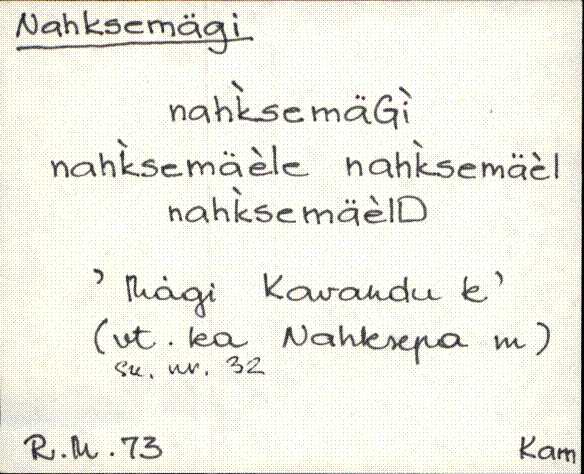 Nahksemägi
nahk̀semäGì
nahk̀semäèle nahk̀semäèl
nahk̀semäèlD
'Mägi Kavandu k'
(vt. ka Nahksepa m)
su. nr. 32
R.M.73 Kam